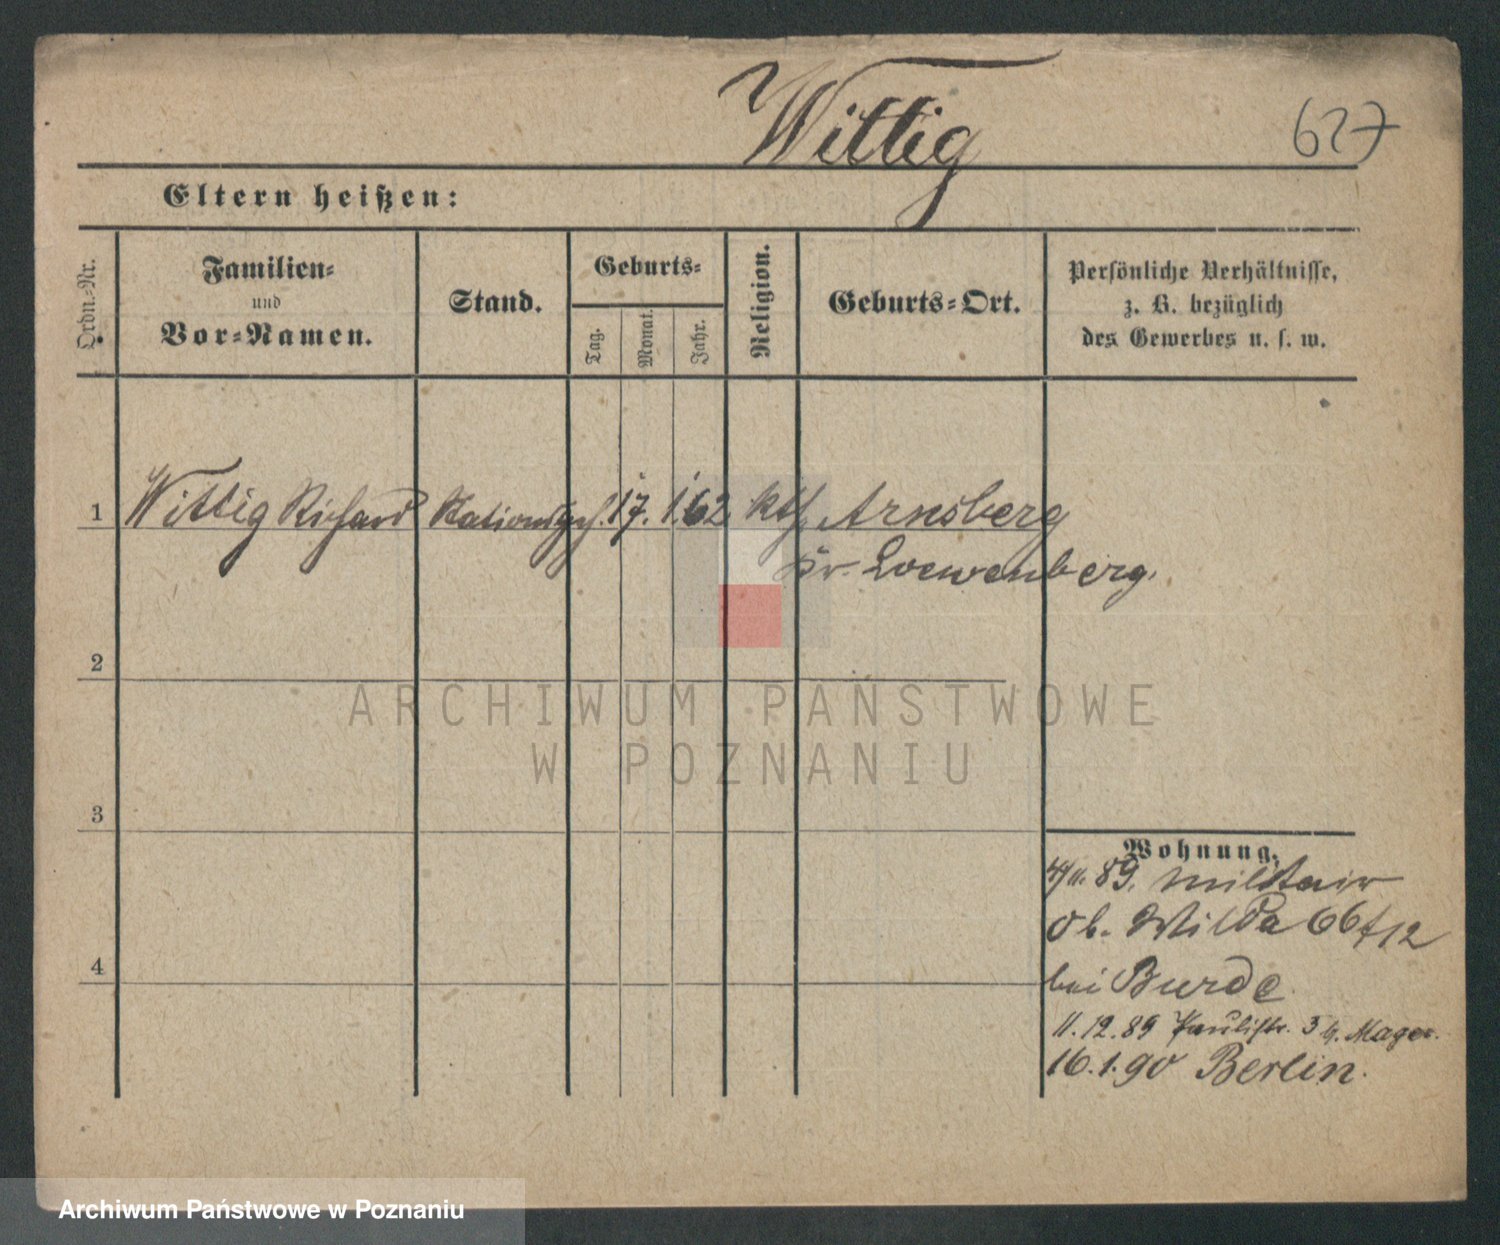 Wittig
627
Eltern heißen:
Ordn.-Nr.
Familien-
und
Vor-Namen.
Stand.
Geburts-
Tag.
Monat.
Jahr.
Religion.
Geburts-Ort.
Persönliche Verhältnisse,
z. B. bezüglich
des Gewerbes u. s. w.
1 Wittig Richard 17. 1. 62 kth. Arnsberg
Kr. Loewenberg.
2
3
4
Wohnung.
89. militair
Ob. Wilda 66
bei Burde
11.12.89 Paulistr. 3 b. Mager.
16.1.90 Berlin.
ARCHIWUM PAŃSTWOWE
W POZNANIU
Archiwum Państwowe w Poznaniu